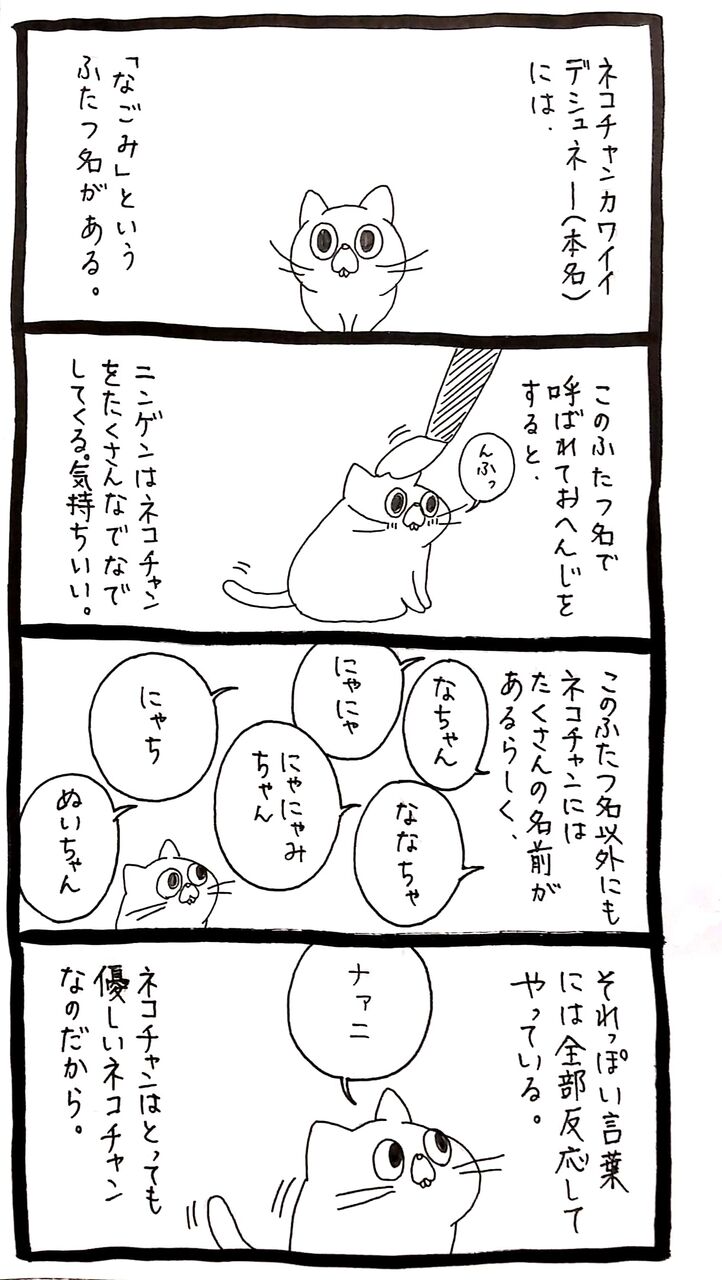 ネコチャンカワイイ
デシュネー(本名)
には、
「なごみ」という
ふたつ名がある。
このふたつ名で
呼ばれておへんじを
すると、
んふっ
ニンゲンはネコチャン
をたくさんなでなで
してくる。気持ちいい。
このふたつ名以外にも
ネコチャンには
たくさんの名前が
あるらしく、
なちゃん
にゃにゃ
ななちゃ
にゃにゃみ
ちゃん
にゃち
ぬいちゃん
それっぽい言葉
には全部反応して
やっている。
ナァニ
ネコチャンはとっても
優しいネコチャン
なのだから。